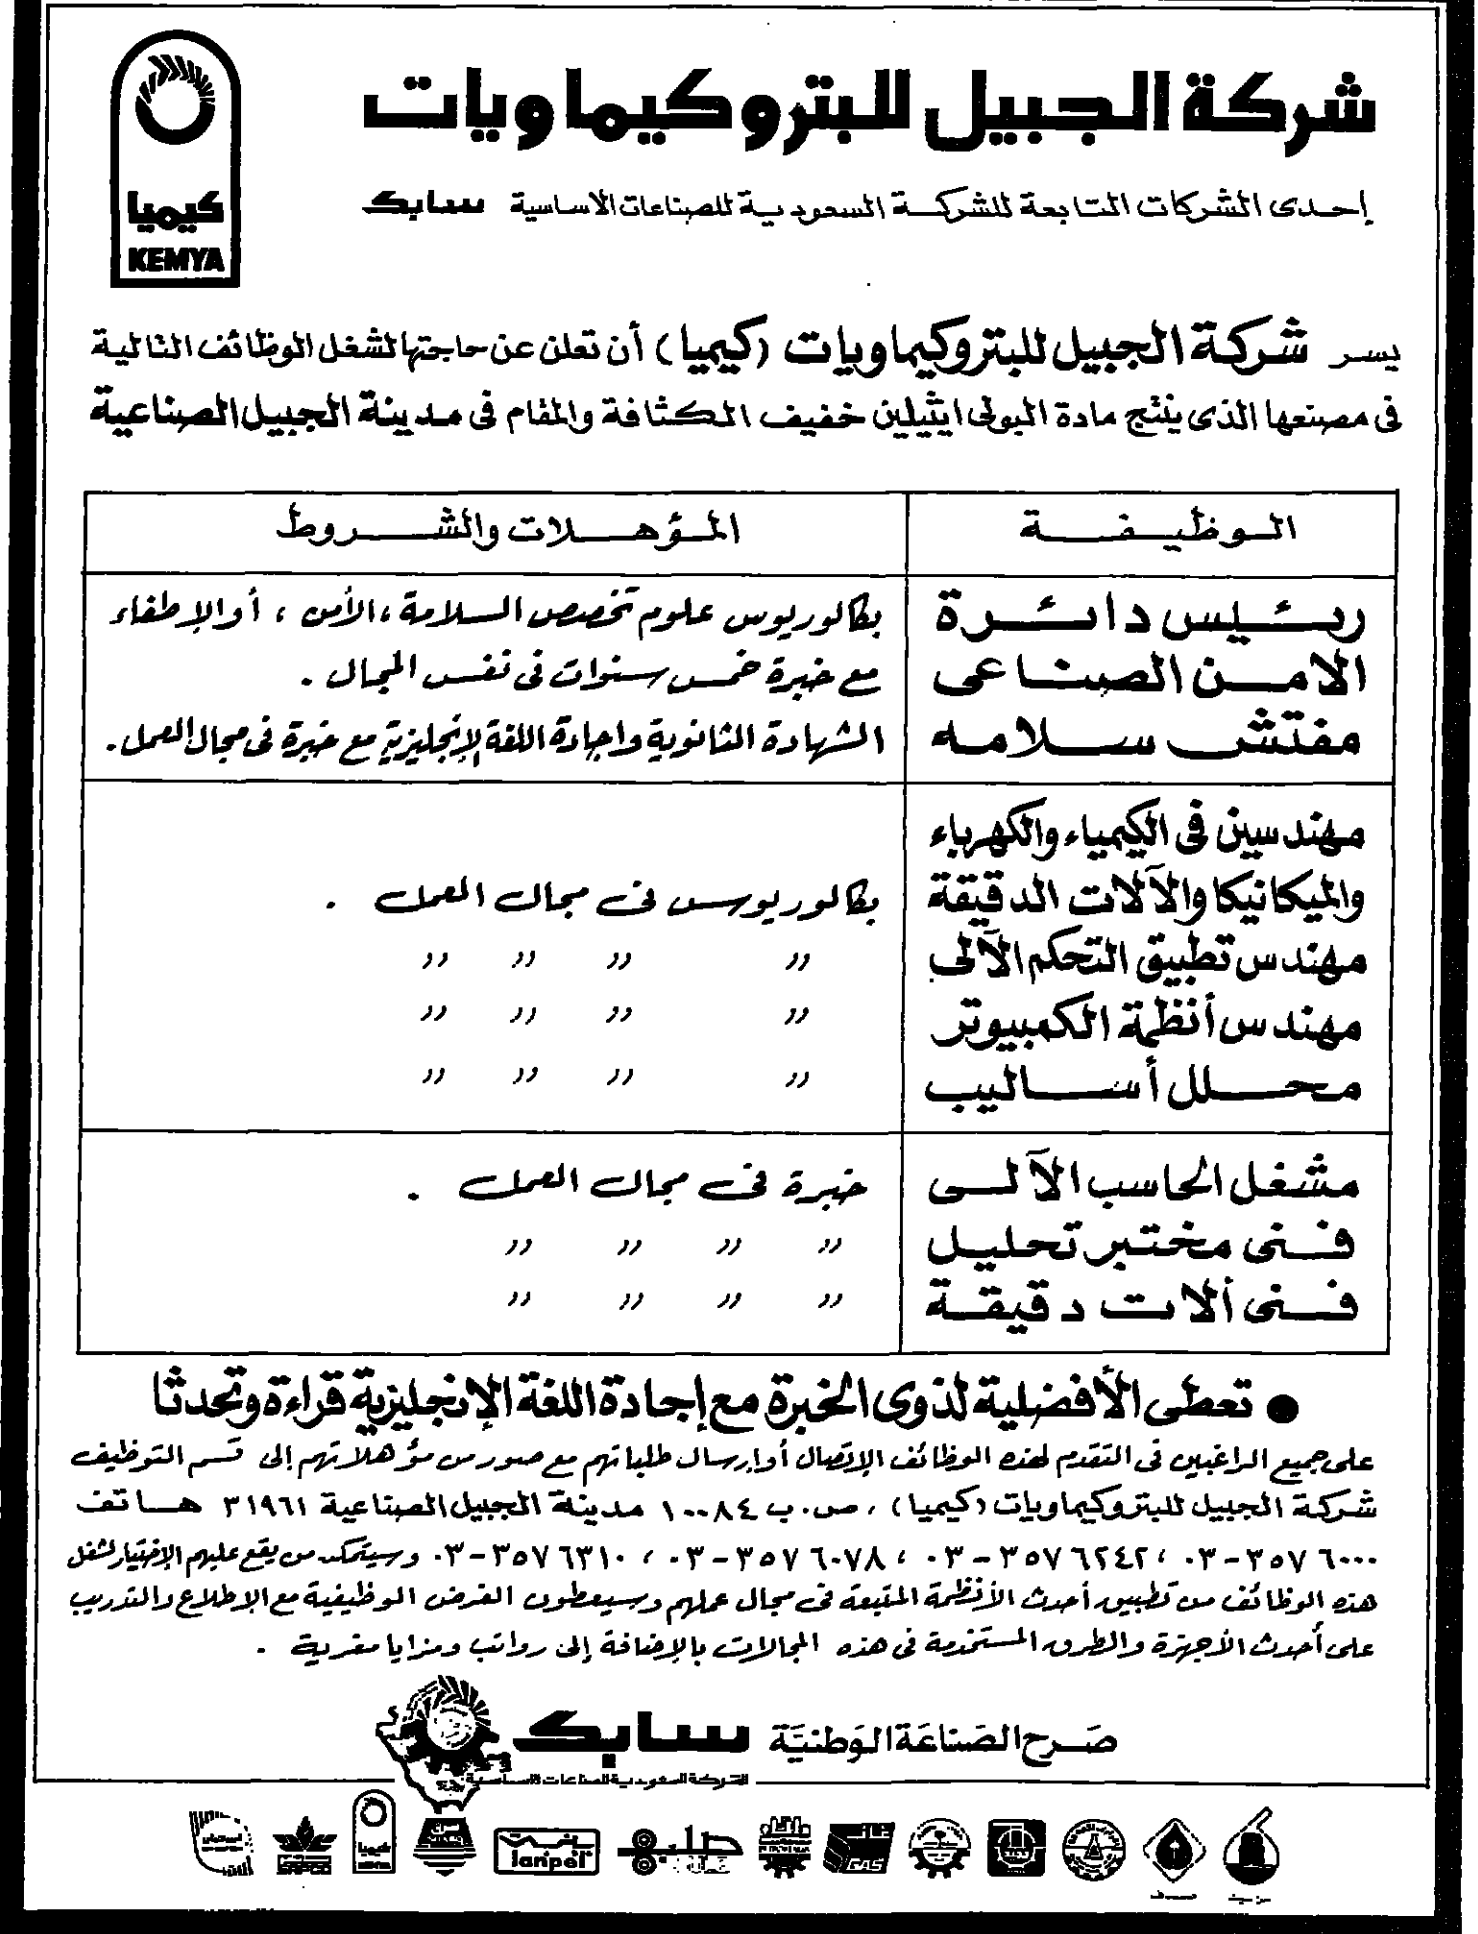 شركة الجبيل للبتروكيماويات
إحدى الشركات التابعة للشركة السعودية للصناعات الاساسية سابك
كيميا
KEMYA
يسر شركة الجبيل للبتروكيماويات (كيميا) أن تعلن عن حاجتها لشغل الوظائف التالية
فى مصنعها الذى ينتج مادة البولى ايثيلين خفيف الكثافة والمقام فى مدينة الجبيل الصناعية
الوظيفة
المؤهلات والشروط
رئيس دائرة
بكالوريوس علوم تخصص السلامة، الأمن، أو الإطفاء
الامن الصناعى
مع خبرة خمس سنوات فى نفس المجال .
مفتش سلامه
الشهادة الثانوية واجادة اللغة الإنجليزية مع خبرة فى مجال العمل .
مهندسين فى الكيمياء والكهرباء
والميكانيكا والآلات الدقيقة
بكالوريوس فى مجال العمل .
مهندس تطبيق التحكم الآلى
〃 〃 〃 〃
مهندس أنظمة الكمبيوتر
〃 〃 〃 〃
محلل أساليب
〃 〃 〃 〃
مشغل الحاسب الآلى
خبرة فى مجال العمل .
فنى مختبر تحليل
〃 〃 〃 〃
فنى ألات دقيقة
〃 〃 〃 〃
● تعطى الأفضلية لذوى الخبرة مع إجادة اللغة الإنجليزية قراءة وتحدثا
على جميع الراغبين فى التقدم لهذه الوظائف الإتصال أو إرسال طلباتهم مع صور من مؤهلاتهم إلى قسم التوظيف
شركة الجبيل للبتروكيماويات (كيميا) ، ص.ب ١٠٠٨٤ مدينة الجبيل الصناعية ٣١٩٦١ هاتف
٠٣-٣٥٧٦٠٠٠ ، ٠٣-٣٥٧٦٢٤٢ ، ٠٣-٣٥٧٦٠٧٨ ، ٠٣-٣٥٧٦٣١٠ وسيتمكن من يقع عليهم الإختيار لشغل
هذه الوظائف من تطبيق أحدث الأنظمة المتبعة فى مجال عملهم وسيعطون الفرص الوظيفية مع الإطلاع والتدريب
على أحدث الأجهزة والطرق المستخدمة فى هذه المجالات بالإضافة إلى رواتب ومزايا مغرية .
صرح الصناعة الوطنية سابك
الشركة السعودية للصناعات الاساسية
كيميا
GAS